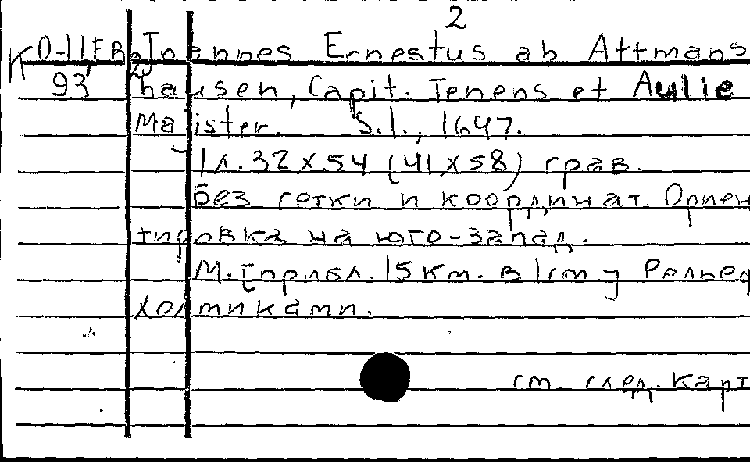 2
К 0-11,ЕВ Joannes Ernestus ab Attmans
93 hausen, Capit. Tenens et Aulie
Magister. S.l., 1647.
1 л. 32 x 54 (41 x 58) грав.
без сетки и координат. Ориен
тировка на юго-запад.
М. 15 км. в 1 см] Рельеф
холмиками.
см. след. карт